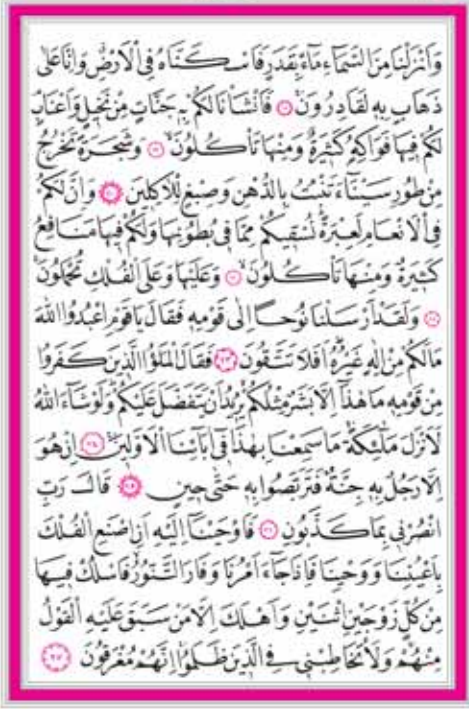 وَاَنْزَلْنَا مِنَ السَّمَٓاءِ مَٓاءً بِقَدَرٍ فَاَسْكَنَّاهُ فِي الْاَرْضِ وَاِنَّا عَلٰى
ذَهَابٍ بِهِ لَقَادِرُونَ ۝١٨ فَاَنْشَأْنَا لَكُمْ بِهِ جَنَّاتٍ مِنْ نَخِيلٍ وَاَعْنَابٍ
لَكُمْ فِيهَا فَوَاكِهُ كَثِيرَةٌ وَمِنْهَا تَأْكُلُونَ ۝١٩ وَشَجَرَةً تَخْرُجُ
مِنْ طُورِ سَيْنَٓاءَ تَنْبُتُ بِالدُّهْنِ وَصِبْغٍ لِلْاٰكِلِينَ ۝٢٠ وَاِنَّ لَكُمْ
فِي الْاَنْعَامِ لَعِبْرَةً نُسْقِيكُمْ مِمَّا فِي بُطُونِهَا وَلَكُمْ فِيهَا مَنَافِعُ
كَثِيرَةٌ وَمِنْهَا تَأْكُلُونَ ۝٢١ وَعَلَيْهَا وَعَلَى الْفُلْكِ تُحْمَلُونَ
۝٢٢ وَلَقَدْ اَرْسَلْنَا نُوحًا اِلٰى قَوْمِهِ فَقَالَ يَا قَوْمِ اعْبُدُوا اللّٰهَ
مَا لَكُمْ مِنْ اِلٰهٍ غَيْرُهُ اَفَلَا تَتَّقُونَ ۝٢٣ فَقَالَ الْمَلَؤُا الَّذِينَ كَفَرُوا
مِنْ قَوْمِهِ مَا هٰذَٓا اِلَّا بَشَرٌ مِثْلُكُمْ يُرِيدُ اَنْ يَتَفَضَّلَ عَلَيْكُمْ وَلَوْ شَٓاءَ اللّٰهُ
لَاَنْزَلَ مَلٰٓئِكَةً مَا سَمِعْنَا بِهٰذَا فِٓي اٰبَٓائِنَا الْاَوَّلِينَ ۝٢٤ اِنْ هُوَ
اِلَّا رَجُلٌ بِهِ جِنَّةٌ فَتَرَبَّصُوا بِهِ حَتّٰى حِينٍ ۝٢٥ قَالَ رَبِّ
انْصُرْنِي بِمَا كَذَّبُونِ ۝٢٦ فَاَوْحَيْنَٓا اِلَيْهِ اَنِ اصْنَعِ الْفُلْكَ
بِاَعْيُنِنَا وَوَحْيِنَا فَاِذَا جَٓاءَ اَمْرُنَا وَفَارَ التَّنُّورُ فَاسْلُكْ فِيهَا
مِنْ كُلٍّ زَوْجَيْنِ اثْنَيْنِ وَاَهْلَكَ اِلَّا مَنْ سَبَقَ عَلَيْهِ الْقَوْلُ
مِنْهُمْ وَلَا تُخَاطِبْنِي فِي الَّذِينَ ظَلَمُوا اِنَّهُمْ مُغْرَقُونَ ۝٢٧